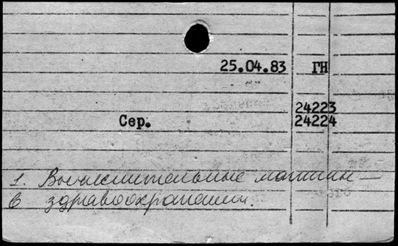 25.04.83 ГН
24223
Сер. 24224
1. Вычислительные машины —
в здравоохранении.